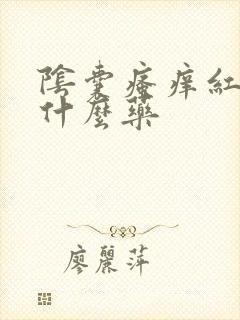 陰囊瘙痒紅
什麼藥
廖麗萍